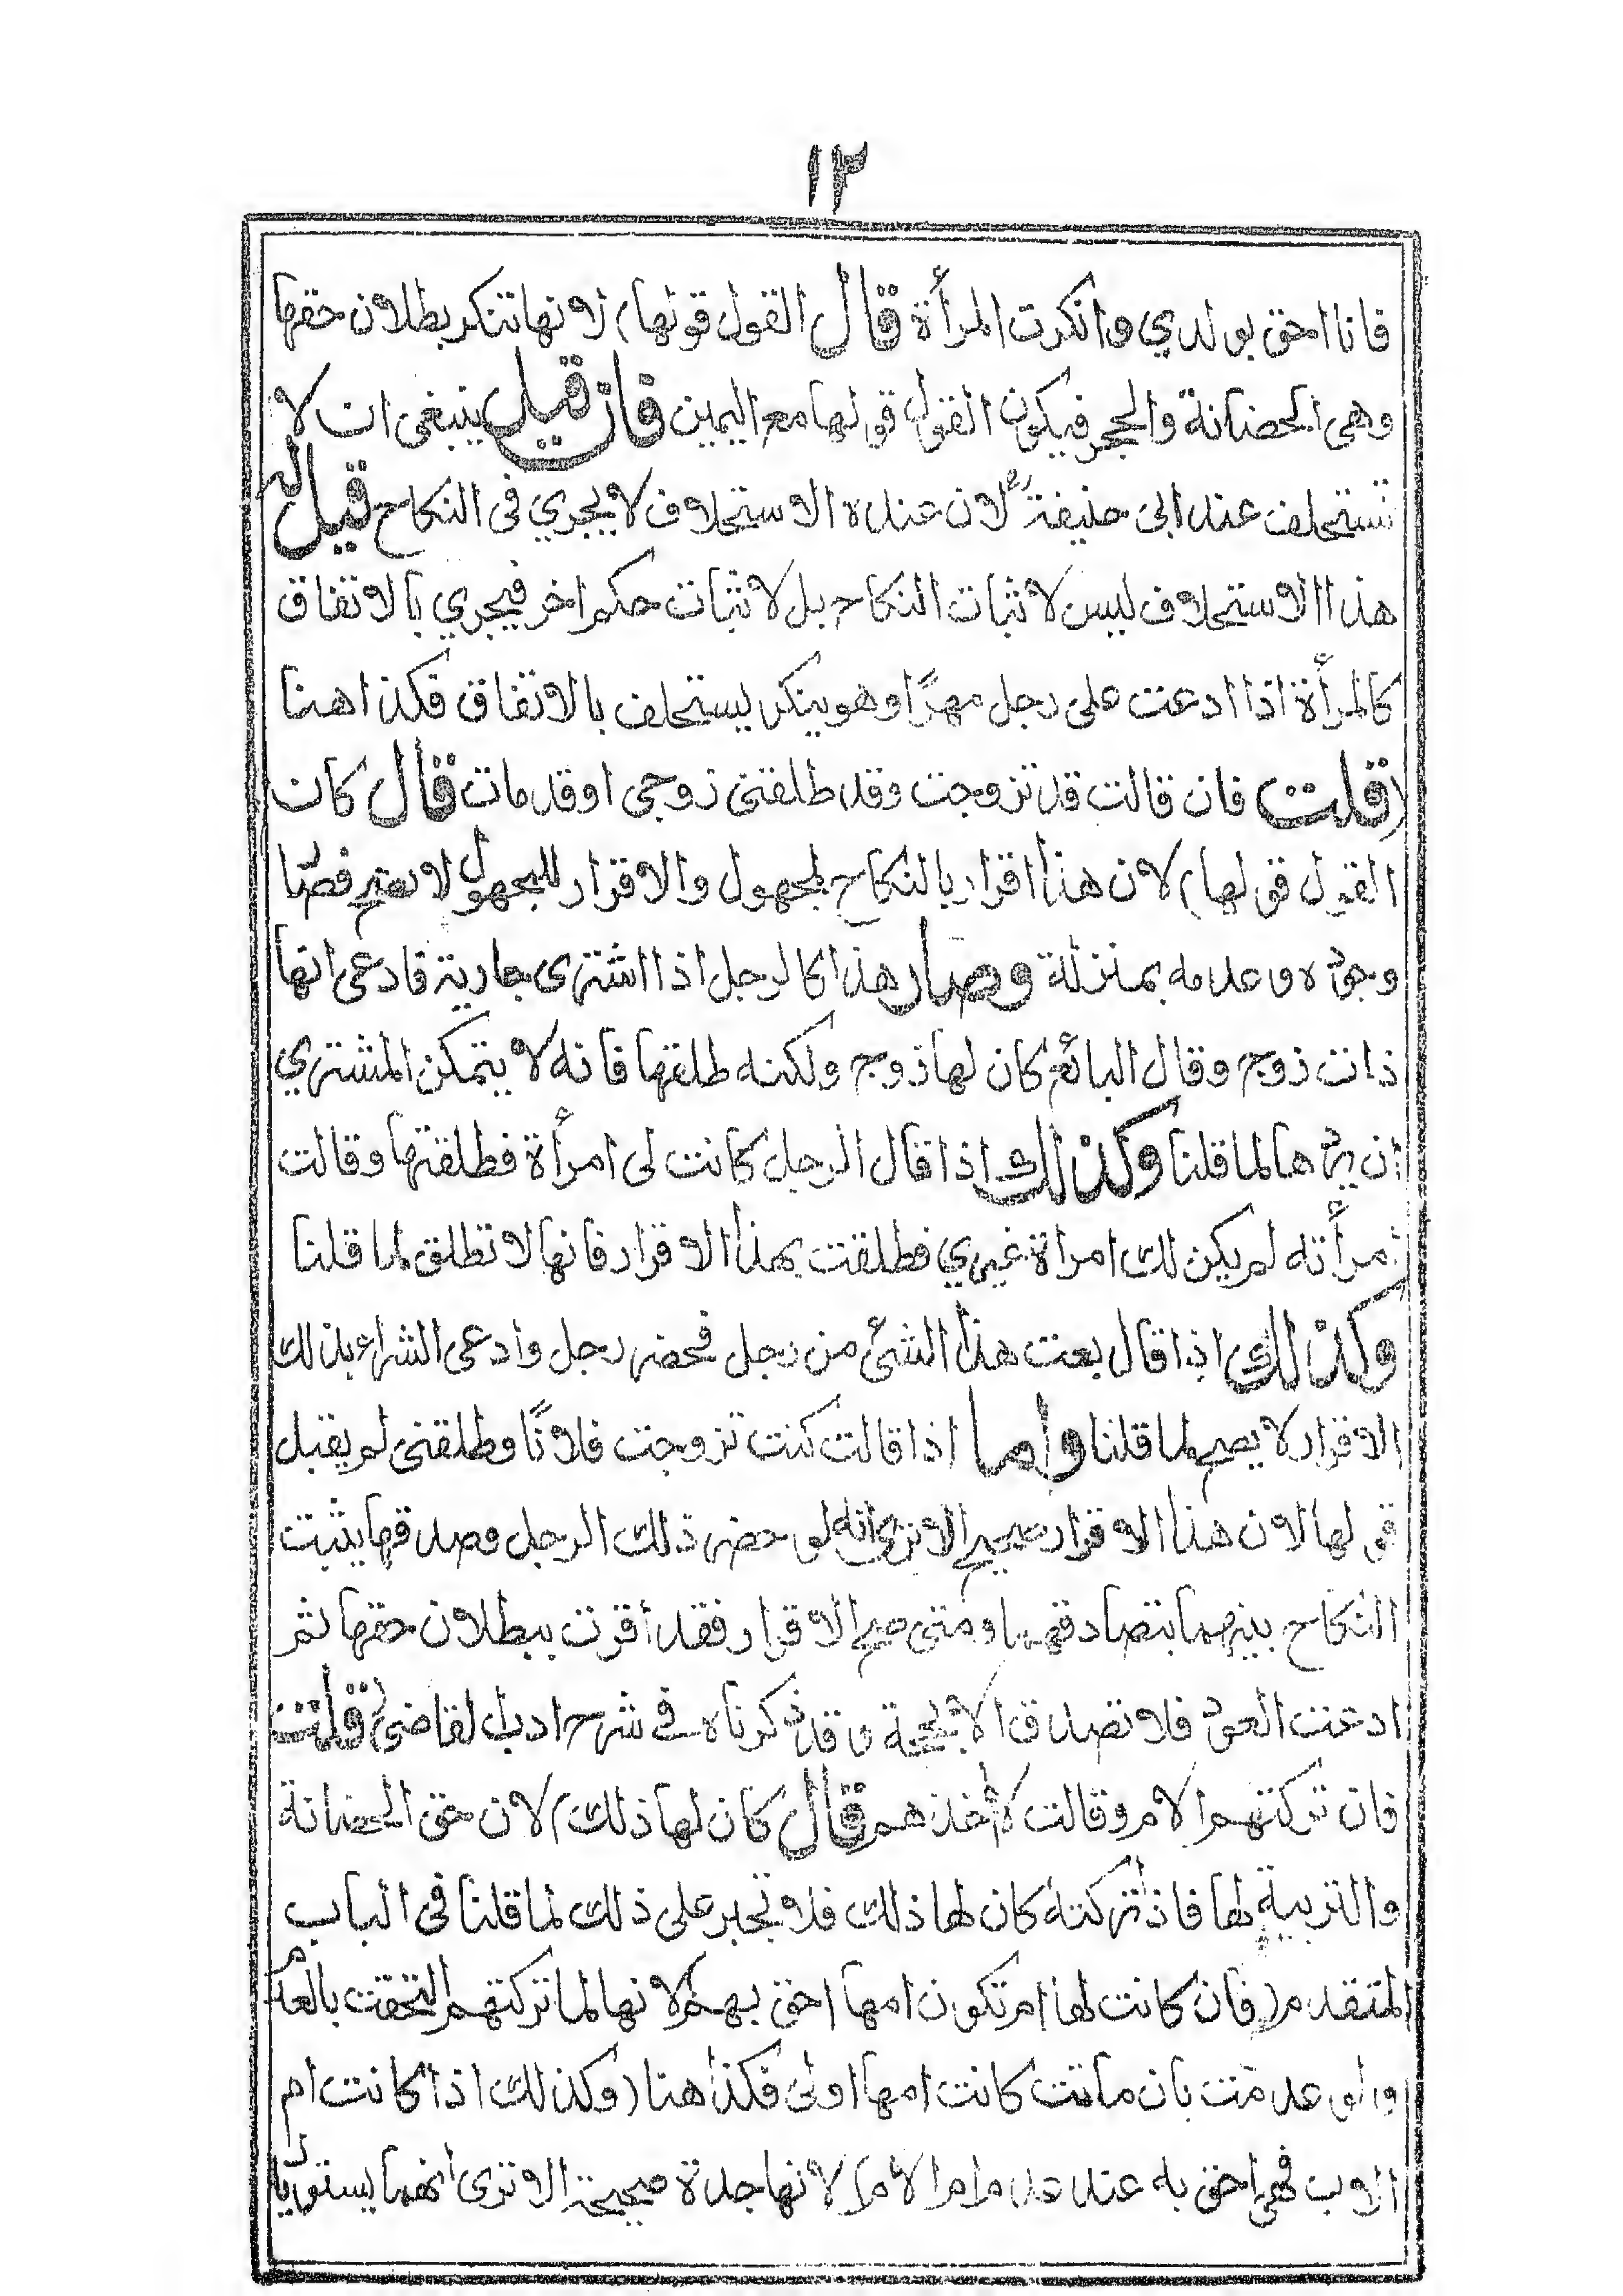 ١٣
فانا احق بولدي وانكرت المرأة قال القول قولها) لانها تنكر بطلان حقها
وهى الحضانة والحجر فيكون القول قولها مع اليمين فان قيل ينبغى ان لا
تستحلف عند ابى حنيفة لان عنده الاستحلاف لا يجري فى النكاح قيل له
هذا الاستحلاف ليس لاثبات النكاح بل لاثبات حكم اخر فيجري بالاتفاق
كالمرأة اذا ادعت على رجل مهرًا وهو ينكر يستحلف بالاتفاق فكذا هنا
(قلت فان قالت قد تزوجت وقد طلقنى زوجى او قد مات قال كان
القول قولها) لان هذا اقرار بالنكاح لمجهول والاقرار للمجهول لا يصح فصار
وجوده وعدمه بمنزلة وصار هذا كالرجل اذا اشترى جارية فادعى انها
ذات زوج وقال البائع كان لها زوج ولكنه طلقها فانه لا يتمكن المشتري
ان يردها لما قلنا وكذلك اذا قال الرجل كانت لى امرأة فطلقتها وقالت
امرأته لم يكن لك امرأة غيري فطلقت بهذا الاقرار فانها لا تطلق لما قلنا
وكذلك اذا قال بعت هذا الشئ من رجل فحضر رجل وادعى الشراء بذلك
الاقرار لا يصح لما قلنا واما اذا قالت كنت تزوجت فلانًا وطلقنى لم يقبل
قولها لان هذا الاقرار صحيح الا ترى انه لو حضر ذلك الرجل وصدقها يثبت
النكاح بينهما بتصادقهما ومتى صح الاقرار فقد أقرت ببطلان حقها ثم
ادعت العود فلا تصدق الا بحجة وقد ذكرناه فى شرح ادب القاضى (قلت
فان تركتهم الام وقالت لا أخذهم قال كان لها ذلك) لان حق الحضانة
والتربية لها فاذا تركته كان لها ذلك فلا تجبر على ذلك لما قلنا فى الباب
المتقدم (فان كانت لها ام تكون امها احق بهم) لانها لما تركتهم التحقت بالعدم
ولو عدمت بان ماتت كانت امها اولى فكذا هنا (وكذلك اذا كانت ام
الاب فهى احق به عند عدم ام الأم) لانها جدة صحيحة الا ترى انهما يستويان